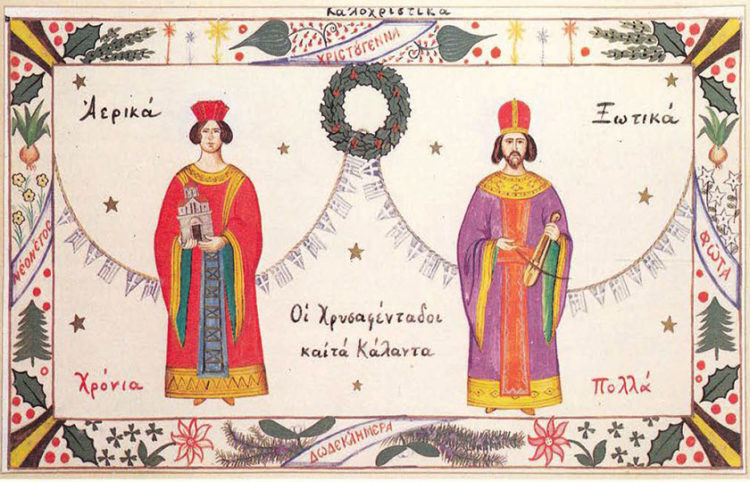 Καλοχριστικα
ΧΡΙΣΤΟΥΓΕΝΝΑ
Ἀερικά
Ξωτικά
ΝΕΟΝΕΤΟΣ
ΦΩΤΑ
Οἱ Χρυσαφένταδοι
καίτά Κάλαντα
Χρόνια
Πολλά
ΔΩΔΕΚΑΗΜΕΡΑ